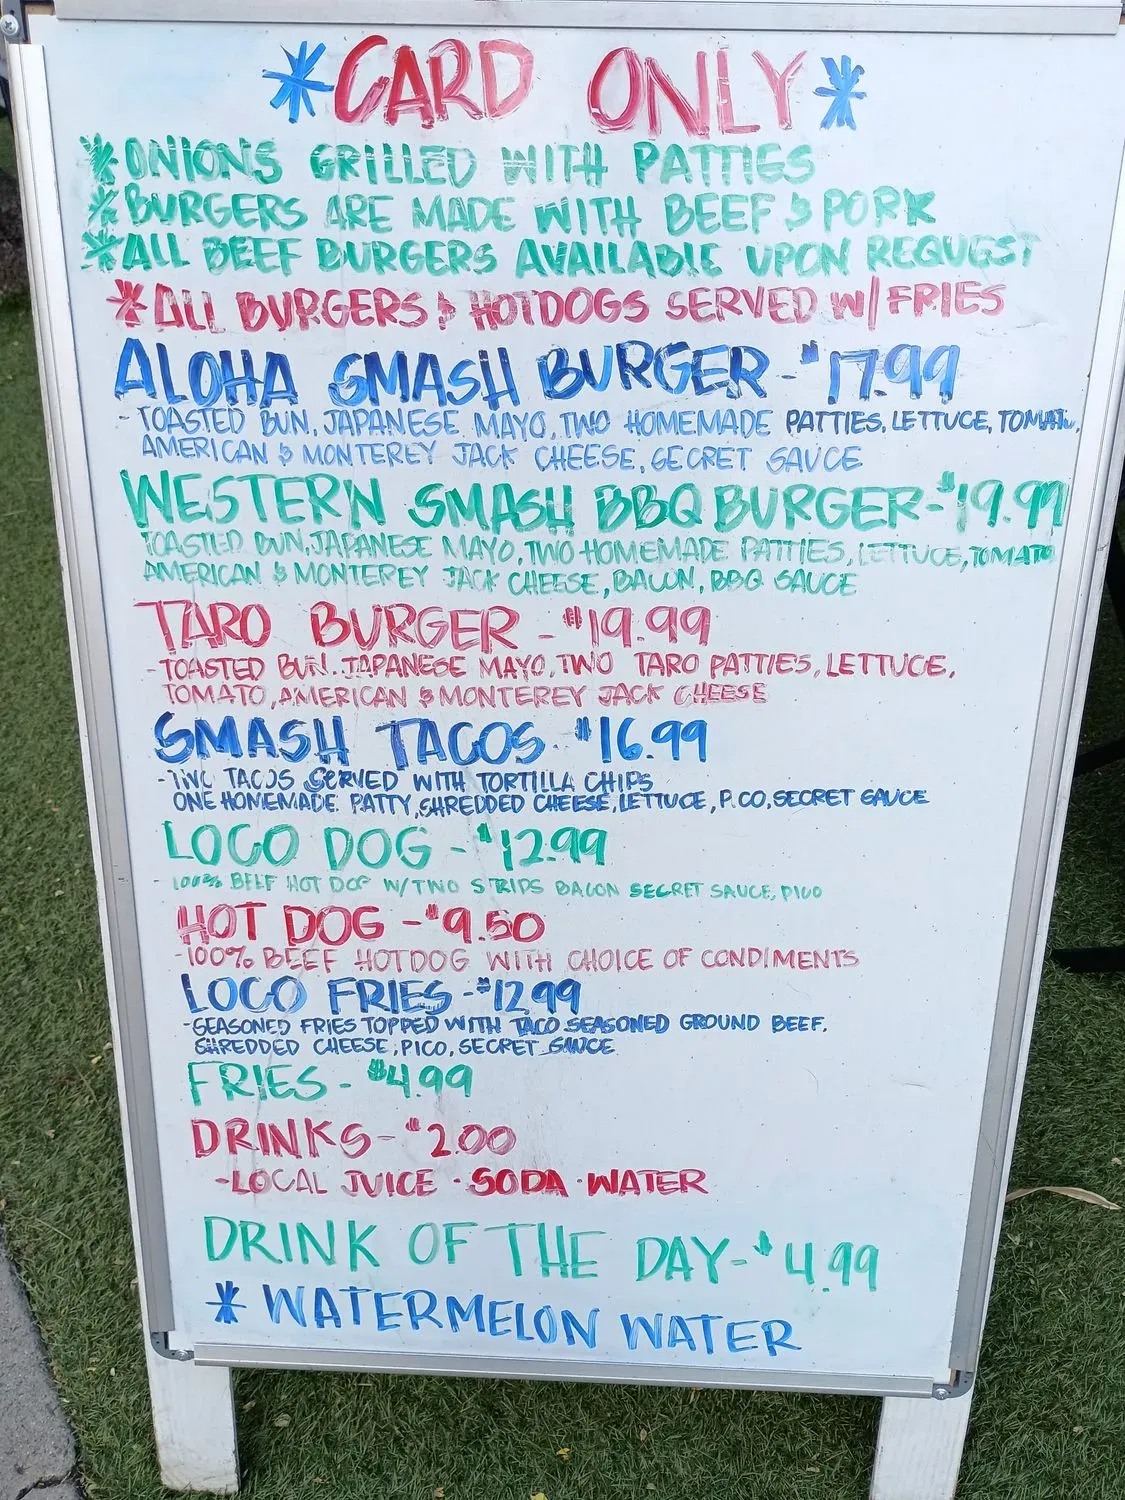 *CARD ONLY*
*ONIONS GRILLED WITH PATTIES
*BURGERS ARE MADE WITH BEEF & PORK
*ALL BEEF BURGERS AVAILABLE UPON REQUEST
*ALL BURGERS & HOTDOGS SERVED W/ FRIES
ALOHA SMASH BURGER - $17.99
- TOASTED BUN, JAPANESE MAYO, TWO HOMEMADE PATTIES, LETTUCE, TOMATO,
AMERICAN & MONTEREY JACK CHEESE, SECRET SAUCE
WESTERN SMASH BBQ BURGER - $19.99
TOASTED BUN, JAPANESE MAYO, TWO HOMEMADE PATTIES, LETTUCE, TOMATO
AMERICAN & MONTEREY JACK CHEESE, BACON, BBQ SAUCE
TARO BURGER - $19.99
- TOASTED BUN, JAPANESE MAYO, TWO TARO PATTIES, LETTUCE,
TOMATO, AMERICAN & MONTEREY JACK CHEESE
SMASH TACOS - $16.99
- TWO TACOS SERVED WITH TORTILLA CHIPS
ONE HOMEMADE PATTY, SHREDDED CHEESE, LETTUCE, PICO, SECRET SAUCE
LOCO DOG - $12.99
- 100% BEEF HOT DOG W/ TWO STRIPS BACON SECRET SAUCE, PICO
HOT DOG - $9.50
- 100% BEEF HOTDOG WITH CHOICE OF CONDIMENTS
LOCO FRIES - $12.99
- SEASONED FRIES TOPPED WITH TACO SEASONED GROUND BEEF,
SHREDDED CHEESE, PICO, SECRET SAUCE
FRIES - $4.99
DRINKS - $2.00
- LOCAL JUICE · SODA · WATER
DRINK OF THE DAY - $4.99
* WATERMELON WATER